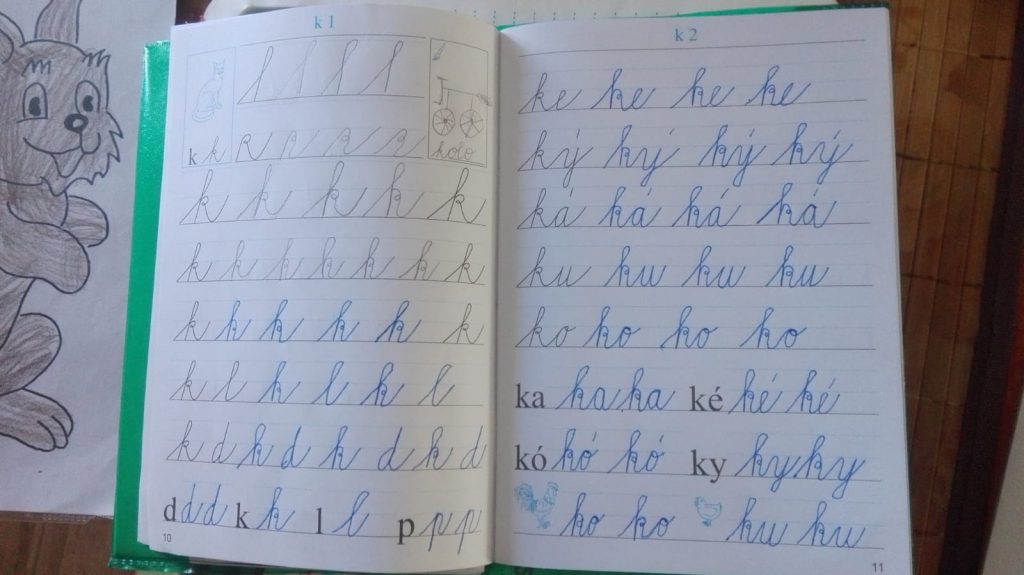 k 1
l l l l
k k
kolo
k k k k k
k k k k k k k
k k k k k k
k l k l k l
k d k d k d k d
d d d k k l l p p p
10
k 2
ke ke ke ke
ký ký ký ký
ká ká ká ká
ku ku ku ku
ko ko ko ko
ka ka ka ké ké ké
kó kó kó ky ky ky
ko ko ku ku
11